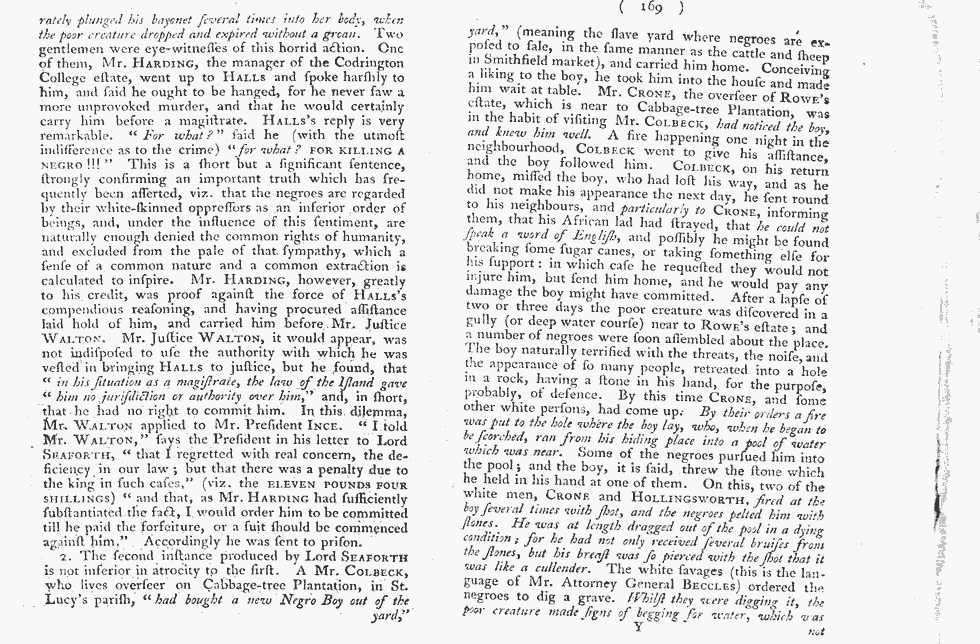 rately plunged his bayonet ſeveral times into her body, when
the poor creature dropped and expired without a groan. Two
gentlemen were eye-witneſſes of this horrid action. One
of them, Mr. HARDING, the manager of the Codrington
College eſtate, went up to HALLS and ſpoke harſhly to
him, and ſaid he ought to be hanged, for he never ſaw a
more unprovoked murder, and that he would certainly
carry him before a magiſtrate. HALLS's reply is very
remarkable. “ For what?” ſaid he (with the utmoſt
indifference as to the crime) “for what? FOR KILLING A
NEGRO!!!” This is a ſhort but a ſignificant ſentence,
ſtrongly confirming an important truth which has fre-
quently been aſſerted, viz. that the negroes are regarded
by their white-ſkinned oppreſſors as an inferior order of
beings, and, under the influence of this ſentiment, are
naturally enough denied the common rights of humanity,
and excluded from the pale of that ſympathy, which a
ſenſe of a common nature and a common extraction is
calculated to inſpire. Mr. HARDING, however, greatly
to his credit, was proof againſt the force of HALLS's
compendious reaſoning, and having procured aſſiſtance
laid hold of him, and carried him before Mr. Juſtice
WALTON. Mr. Juſtice WALTON, it would appear, was
not indiſpoſed to uſe the authority with which he was
veſted in bringing HALLS to juſtice, but he found, that
“ in his ſituation as a magiſtrate, the law of the Iſland gave
“ him no juriſdiction or authority over him,” and, in ſhort,
that he had no right to commit him. In this dilemma,
Mr. WALTON applied to Mr. Preſident INCE. “ I told
Mr. WALTON,” ſays the Preſident in his letter to Lord
SEAFORTH, “ that I regretted with real concern, the de-
ficiency in our law; but that there was a penalty due to
the king in ſuch caſes,” (viz. the ELEVEN POUNDS FOUR
SHILLINGS) “ and that, as Mr. HARDING had ſufficiently
ſubſtantiated the fact, I would order him to be committed
till he paid the forfeiture, or a ſuit ſhould be commenced
againſt him,” Accordingly he was ſent to priſon.
2. The ſecond inſtance produced by Lord SEAFORTH
is not inferior in atrocity to the firſt. A Mr. COLBECK,
who lives overſeer on Cabbage-tree Plantation, in St.
Lucy's pariſh, “ had bought a new Negro Boy out of the
yard,”
( 169 )
yard,” (meaning the ſlave yard where negroes are ex-
poſed to ſale, in the ſame manner as the cattle and ſheep
in Smithfield market), and carried him home. Conceiving
a liking to the boy, he took him into the houſe and made
him wait at table. Mr. CRONE, the overſeer of ROWE's
eſtate, which is near to Cabbage-tree Plantation, was
in the habit of viſiting Mr. COLBECK, had noticed the boy,
and knew him well. A fire happening one night in the
neighbourhood, COLBECK went to give his aſſiſtance,
and the boy followed him. COLBECK, on his return
home, miſſed the boy, who had loſt his way, and as he
did not make his appearance the next day, he ſent round
to his neighbours, and particularly to CRONE, informing
them, that his African lad had ſtrayed, that he could not
ſpeak a word of Engliſh, and poſſibly he might be found
breaking ſome ſugar canes, or taking ſomething elſe for
his ſupport: in which caſe he requeſted they would not
injure him, but ſend him home, and he would pay any
damage the boy might have committed. After a lapſe of
two or three days the poor creature was diſcovered in a
gully (or deep water courſe) near to ROWE's eſtate; and
a number of negroes were ſoon aſſembled about the place.
The boy naturally terrified with the threats, the noiſe, and
the appearance of ſo many people, retreated into a hole
in a rock, having a ſtone in his hand, for the purpoſe,
probably, of defence. By this time CRONE, and ſome
other white perſons, had come up: By their orders a fire
was put to the hole where the boy lay, who, when he began to
be ſcorched, ran from his hiding place into a pool of water
which was near. Some of the negroes purſued him into
the pool; and the boy, it is ſaid, threw the ſtone which
he held in his hand at one of them. On this, two of the
white men, CRONE and HOLLINGSWORTH, fired at the
boy ſeveral times with ſhot, and the negroes pelted him with
ſtones. He was at length dragged out of the pool in a dying
condition; for he had not only received ſeveral bruiſes from
the ſtones, but his breaſt was ſo pierced with the ſhot that it
was like a cullender. The white ſavages (this is the lan-
guage of Mr. Attorney General BECCLES) ordered the
negroes to dig a grave. Whilſt they were digging it, the
poor creature made ſigns of begging for water, which was
Y
not